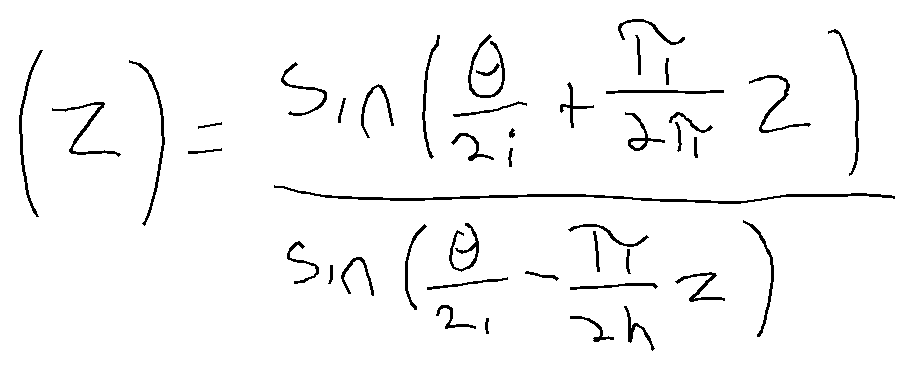 (z) = \frac{\sin\left(\frac{\theta}{2i} + \frac{\pi}{2\pi} z\right)}{\sin\left(\frac{\theta}{2i} - \frac{\pi}{2h} z\right)}